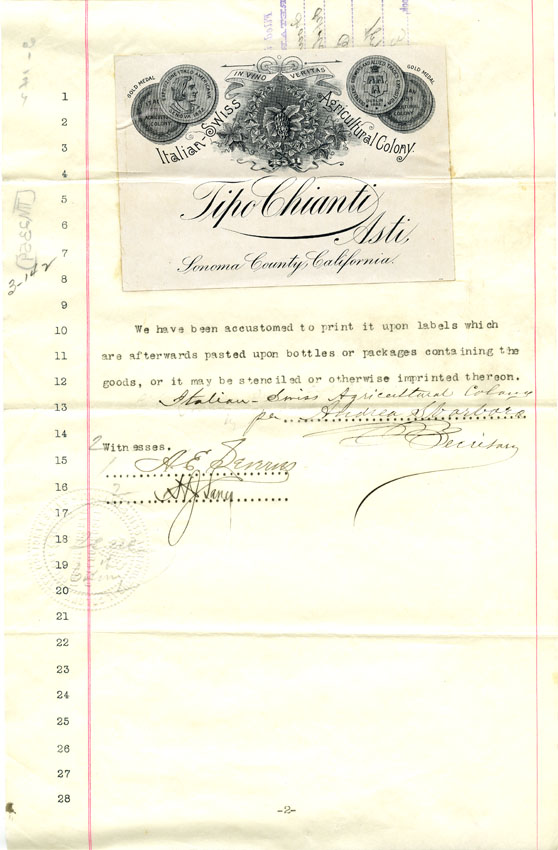 GOLD MEDAL
GOLD MEDAL
IN VINO VERITAS
Italian-Swiss Agricultural Colony
Tipo Chianti
Asti,
Sonoma County, California.
3-142
1
2
3
4
5
6
7
8
9
10 We have been accustomed to print it upon labels which
11 are afterwards pasted upon bottles or packages containing the
12 goods, or it may be stenciled or otherwise imprinted thereon.
Italian-Swiss Agricultural Colony
13 per Andrea Sbarboro
14 Secretary
2 Witnesses.
15 1 A. E.
16 2
17
18
19
20
21
22
23
24
25
26
27
28
-2-